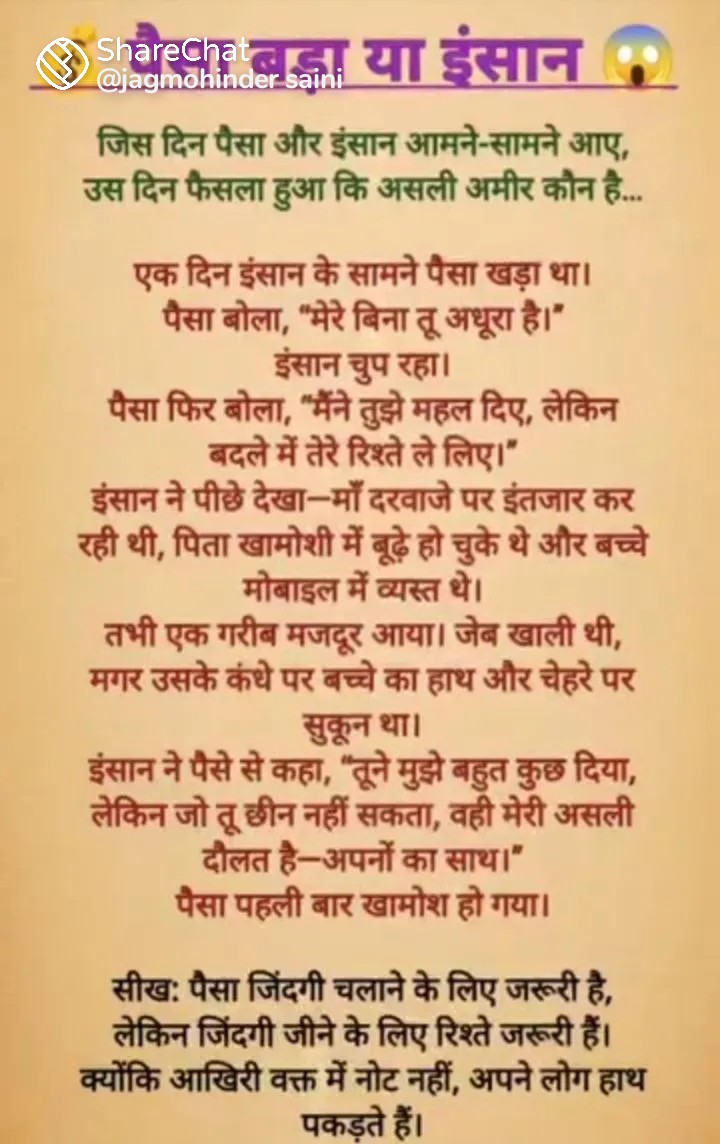 ShareChat
@jagmohinder saini
पैसा बड़ा या इंसान
जिस दिन पैसा और इंसान आमने-सामने आए,
उस दिन फैसला हुआ कि असली अमीर कौन है...
एक दिन इंसान के सामने पैसा खड़ा था।
पैसा बोला, "मेरे बिना तू अधूरा है।"
इंसान चुप रहा।
पैसा फिर बोला, "मैंने तुझे महल दिए, लेकिन
बदले में तेरे रिश्ते ले लिए।"
इंसान ने पीछे देखा—माँ दरवाजे पर इंतजार कर
रही थी, पिता खामोशी में बूढ़े हो चुके थे और बच्चे
मोबाइल में व्यस्त थे।
तभी एक गरीब मजदूर आया। जेब खाली थी,
मगर उसके कंधे पर बच्चे का हाथ और चेहरे पर
सुकून था।
इंसान ने पैसे से कहा, "तूने मुझे बहुत कुछ दिया,
लेकिन जो तू छीन नहीं सकता, वही मेरी असली
दौलत है—अपनों का साथ।"
पैसा पहली बार खामोश हो गया।
सीख: पैसा जिंदगी चलाने के लिए जरूरी है,
लेकिन जिंदगी जीने के लिए रिश्ते जरूरी हैं।
क्योंकि आखिरी वक्त में नोट नहीं, अपने लोग हाथ
पकड़ते हैं।